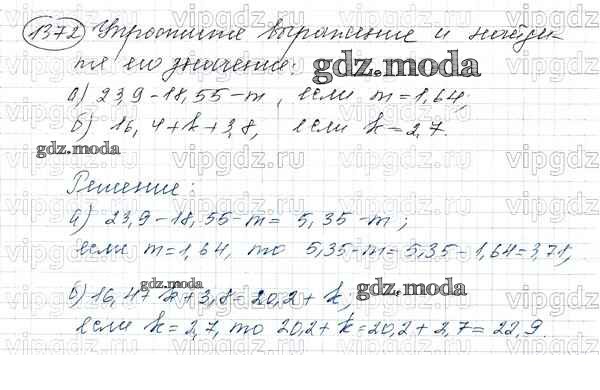 1372 Упростите выражение и найди
те его значение: gdz.moda
а) 23,9-18,55-m, если m=1,64;
б) 16,4+k+3,8, если k=2,7.
gdz.moda
Решение:
а) 23,9-18,55-m=5,35-m;
если m=1,64, то 5,35-m=5,35-1,64=3,71,
gdz.moda
б) 16,4+k+3,8=20,2+k; gdz.moda
если k=2,7, то 20,2+k=20,2+2,7=22,9.
vipgdz.ru